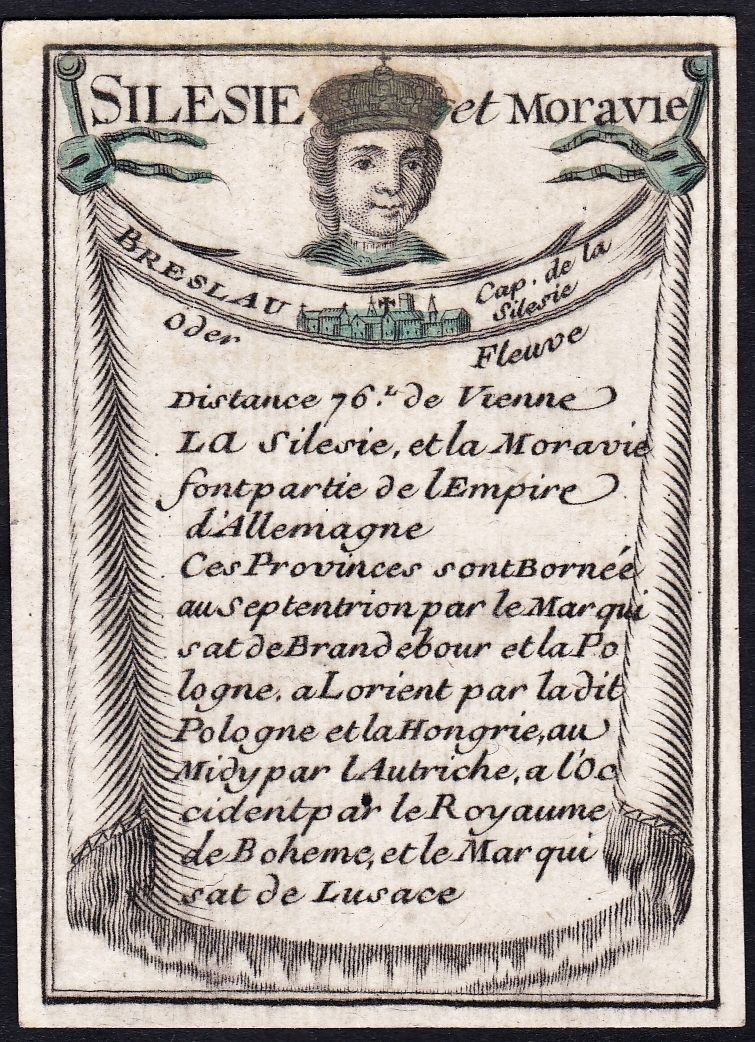 SILESIE et Moravie
BRESLAU
Cap. de la
Silesie
Oder
Fleuve
Distance 76.L de Vienne
La Silesie, et la Moravie
font partie de l'Empire
d'Allemagne
Ces Provinces sont Bornée
au Septentrion par le Marqui
sat de Brandebour et la Po
logne, a Lorient par la dit
Pologne et la Hongrie, au
Midy par l Autriche, a l'Oc
cident par le Royaume
de Boheme, et le Marqui
sat de Lusace